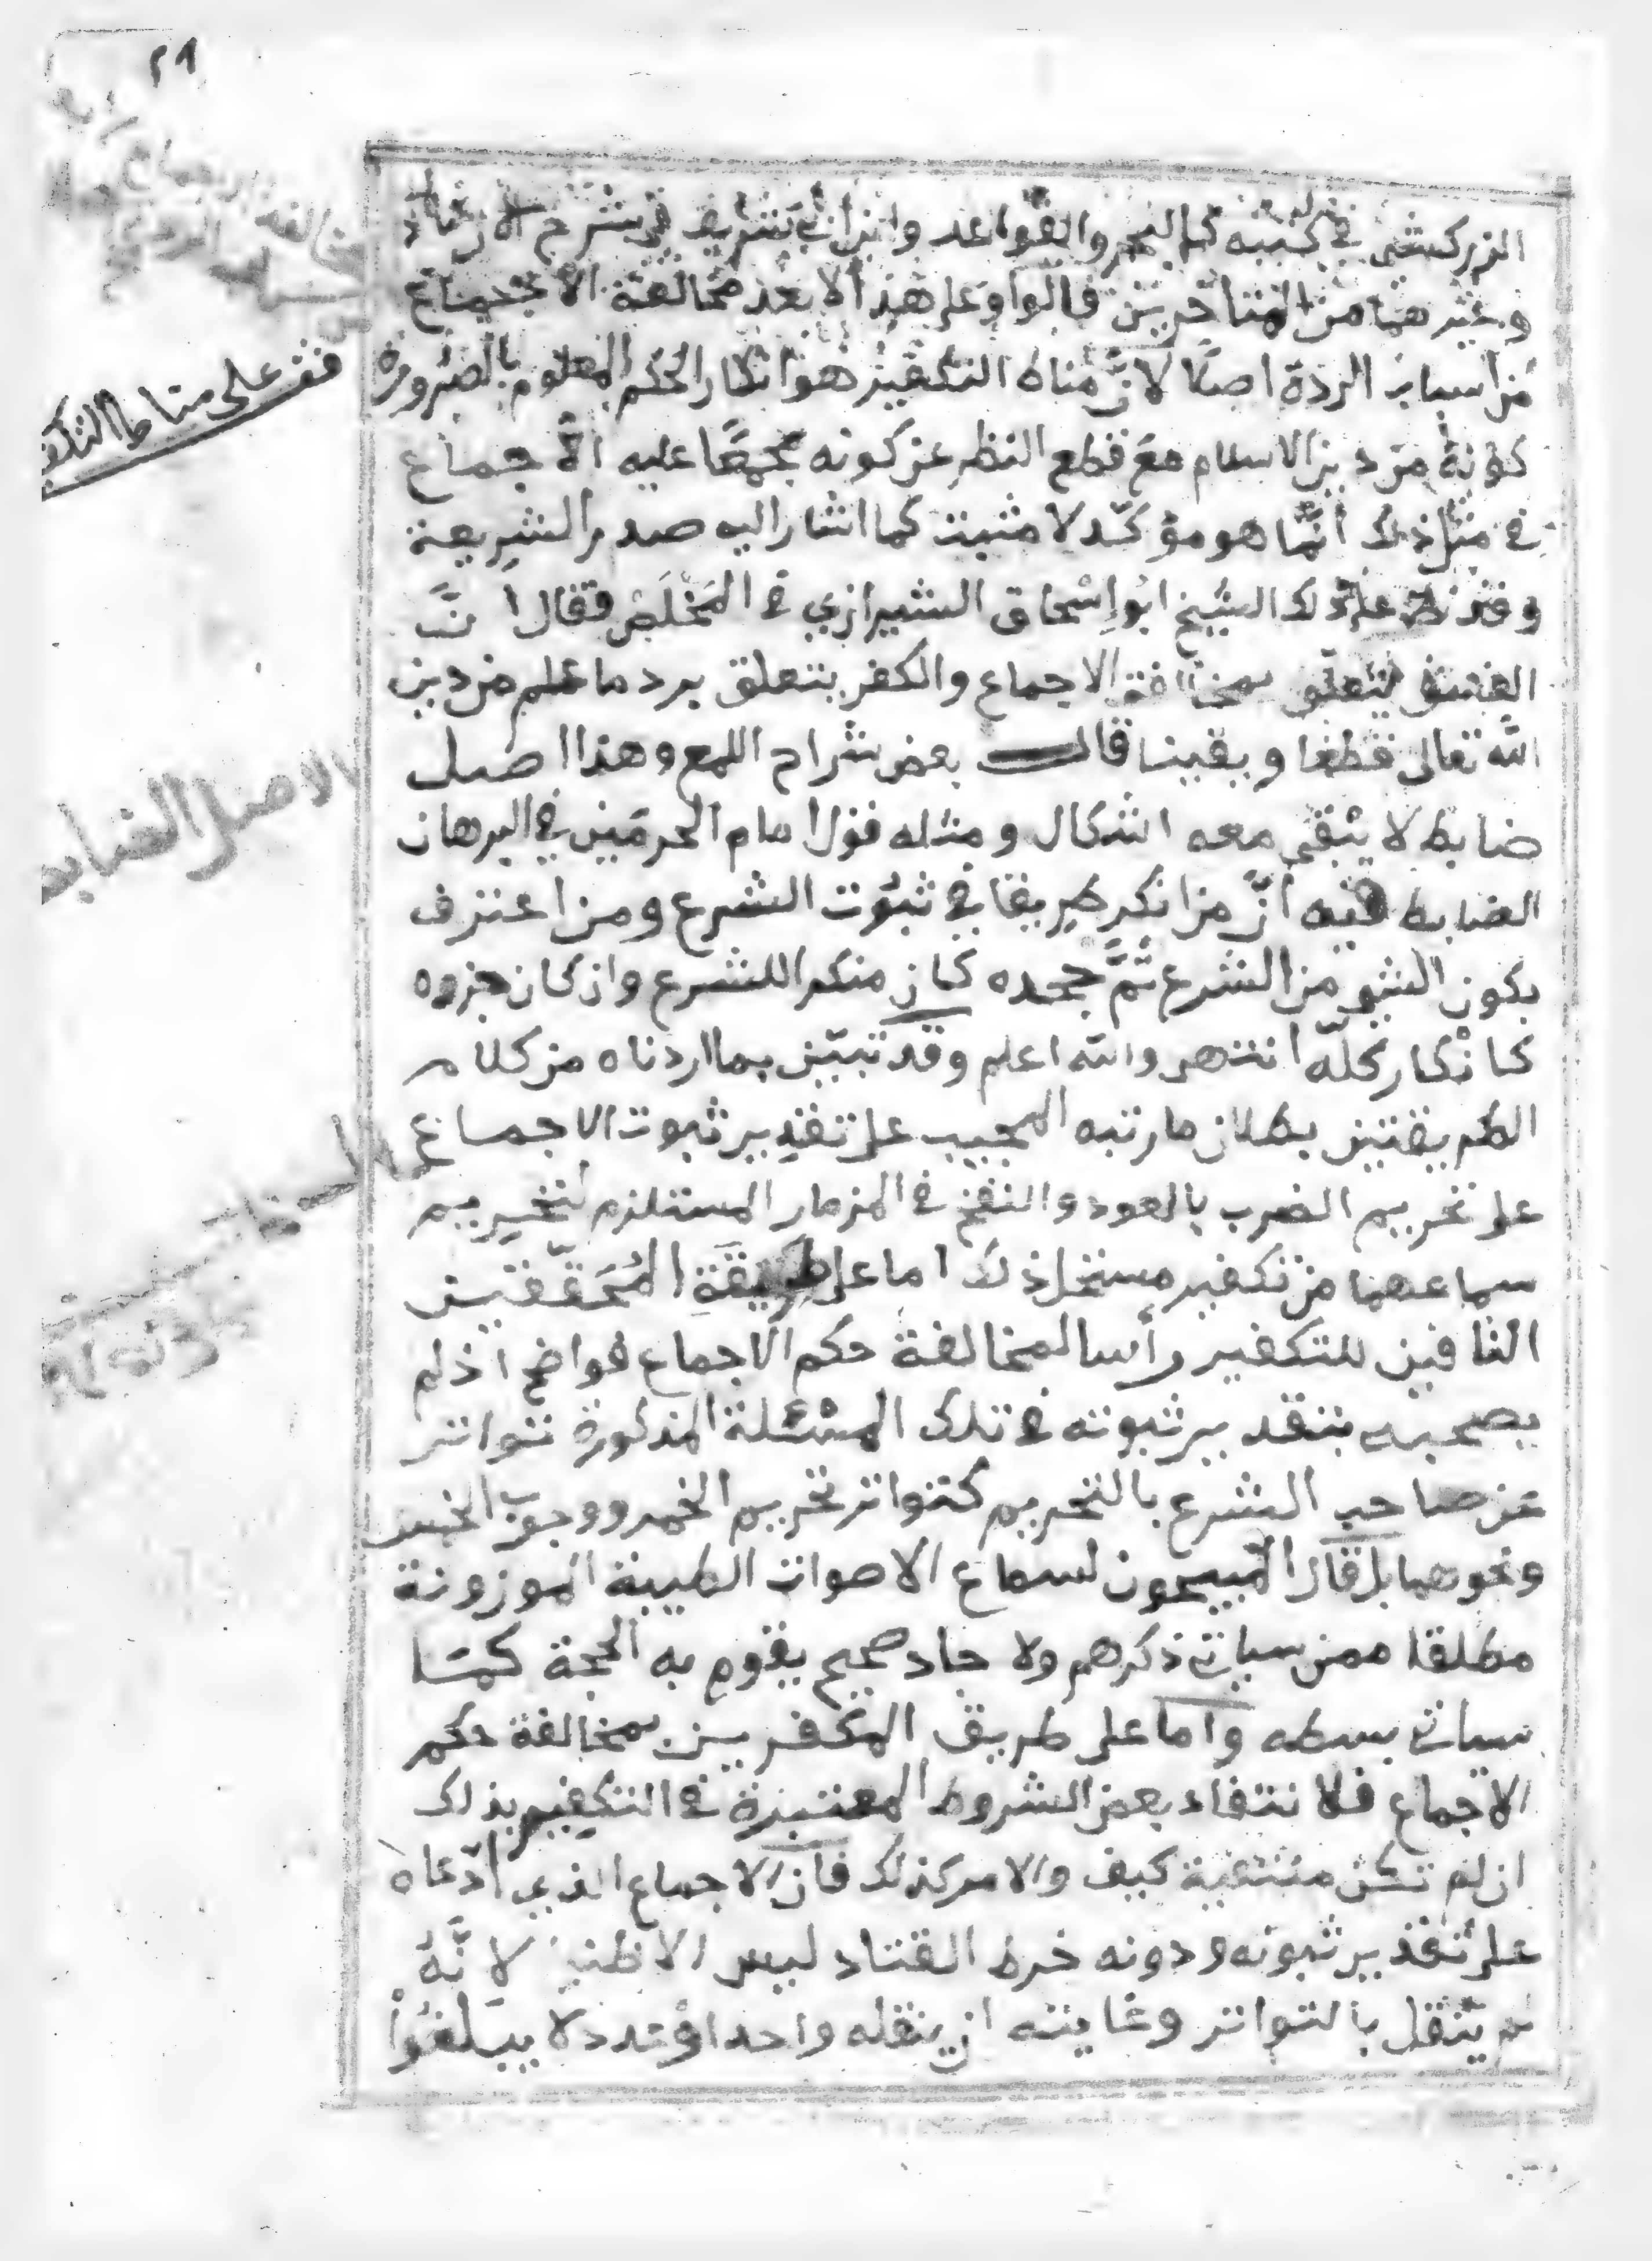 ٢٩
الزركشي في كتبه كالبحر والقواعد وابن ابي شريف في شرح الارشاد
وغيرهما من المتاخرين قالوا وعلى هذا لا يعد مخالفة الاجماع
من اسباب الردة اصلًا لانَّ مناط التكفير هو انكار الحكم المعلوم بالضرورة
كونهُ من دين الاسلام مع قطع النظر عن كونه مجمعًا عليه اذ الاجماع
في مثل ذلك انَّما هو مؤكّد لا مثبت كما اشار اليه صدر الشريعة
وقد نص على ذلك الشيخ ابو اسْحاق الشيرازي في الملخص فقال انَّ
الفسق يتعلق بمخالفة الاجماع والكفر يتعلق برد ما علم من دين
الله تعالى قطعا ويقينا قال بعض شراح اللمع وهذا اصل
ضابط لا يبْقى معه اشكال ومثله قول امام الحرمين في البرهان
الضابط فيه انَّ من انكر طريقا في ثبوت الشرع ومن اعترف
بكون الشي من الشرع ثمَّ جحده كان منكرا للشرع وانكان جزوه
كانْكار كلّه انتهى والله اعلم وقد تبيّن بما اردناه من كلام
الطريقتين بطلان ما رتبه المجيب على تقدير ثبوت الاجماع
على تحريم الضرب بالعود والنفخ في المزمار المستلزم لتحريم
سماعهما من تكفير مستحل ذلك اما على طريقةِ المُحَقّقين
النافين للتكفير رأسا لمخالفة حكم الاجماع فواضح اذ لم
يصحبه بتقدير ثبوته في تلك المسْئلة المذكورة تواتر
عن صاحب الشرع بالتحريم كتواتر تحريم الخمر ووجوب الخمس
ونحوهما بل قال المبيحون لسماع الاصوات الطيبة الموزونة
مطلقا ممن سياتي ذكرهم ولا حاد صحيح يقوم به الحجة كمَا
سياتي بسطه واما على طريق المكفرين بمخالفة حكم
الاجماع فلا نتفاء بعض الشروط المعتبرة في التكفير بذلك
ان لم تكن منتفية كيف والامر كذلك فان الاجماع الذي ادّعاه
على تقدير ثبوته ودونه خرط القتاد ليس الا ظني لانَّهُ
لم يُنْقل بالتواتر وغايته ان ينقله واحدا وعدد لا يبلغُواْ
قف على مناط التكف
الاصل الضابط